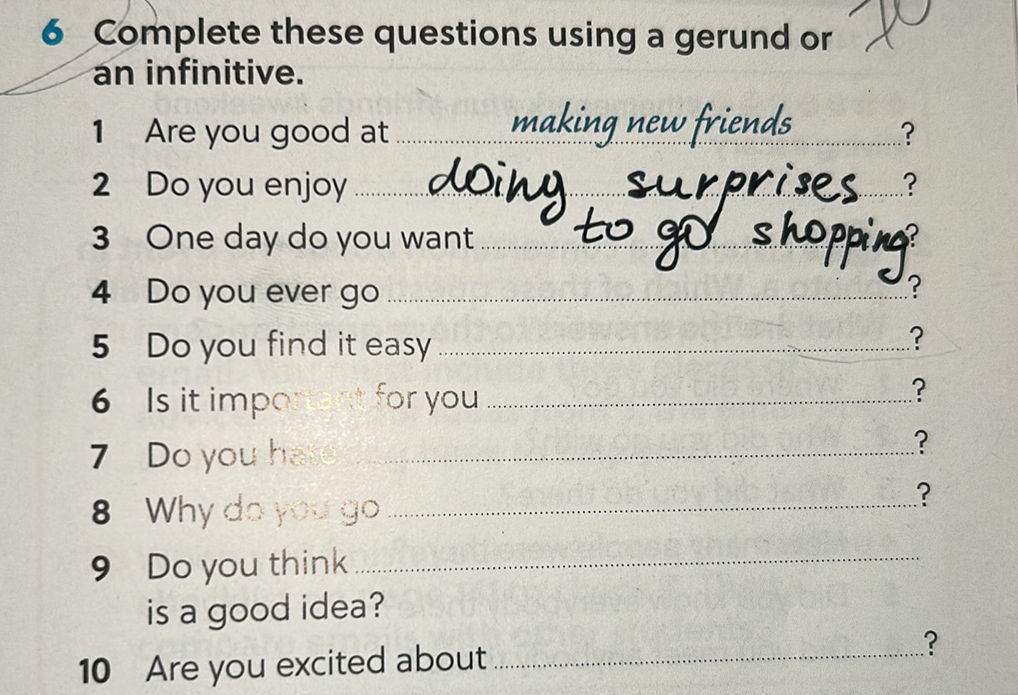 6 Complete these questions using a gerund or
an infinitive.
1 Are you good at making new friends ?
2 Do you enjoy doing surprises ?
3 One day do you want to go shopping ?
4 Do you ever go ?
5 Do you find it easy ?
6 Is it important for you ?
7 Do you hate ?
8 Why do you go ?
9 Do you think
is a good idea?
10 Are you excited about ?